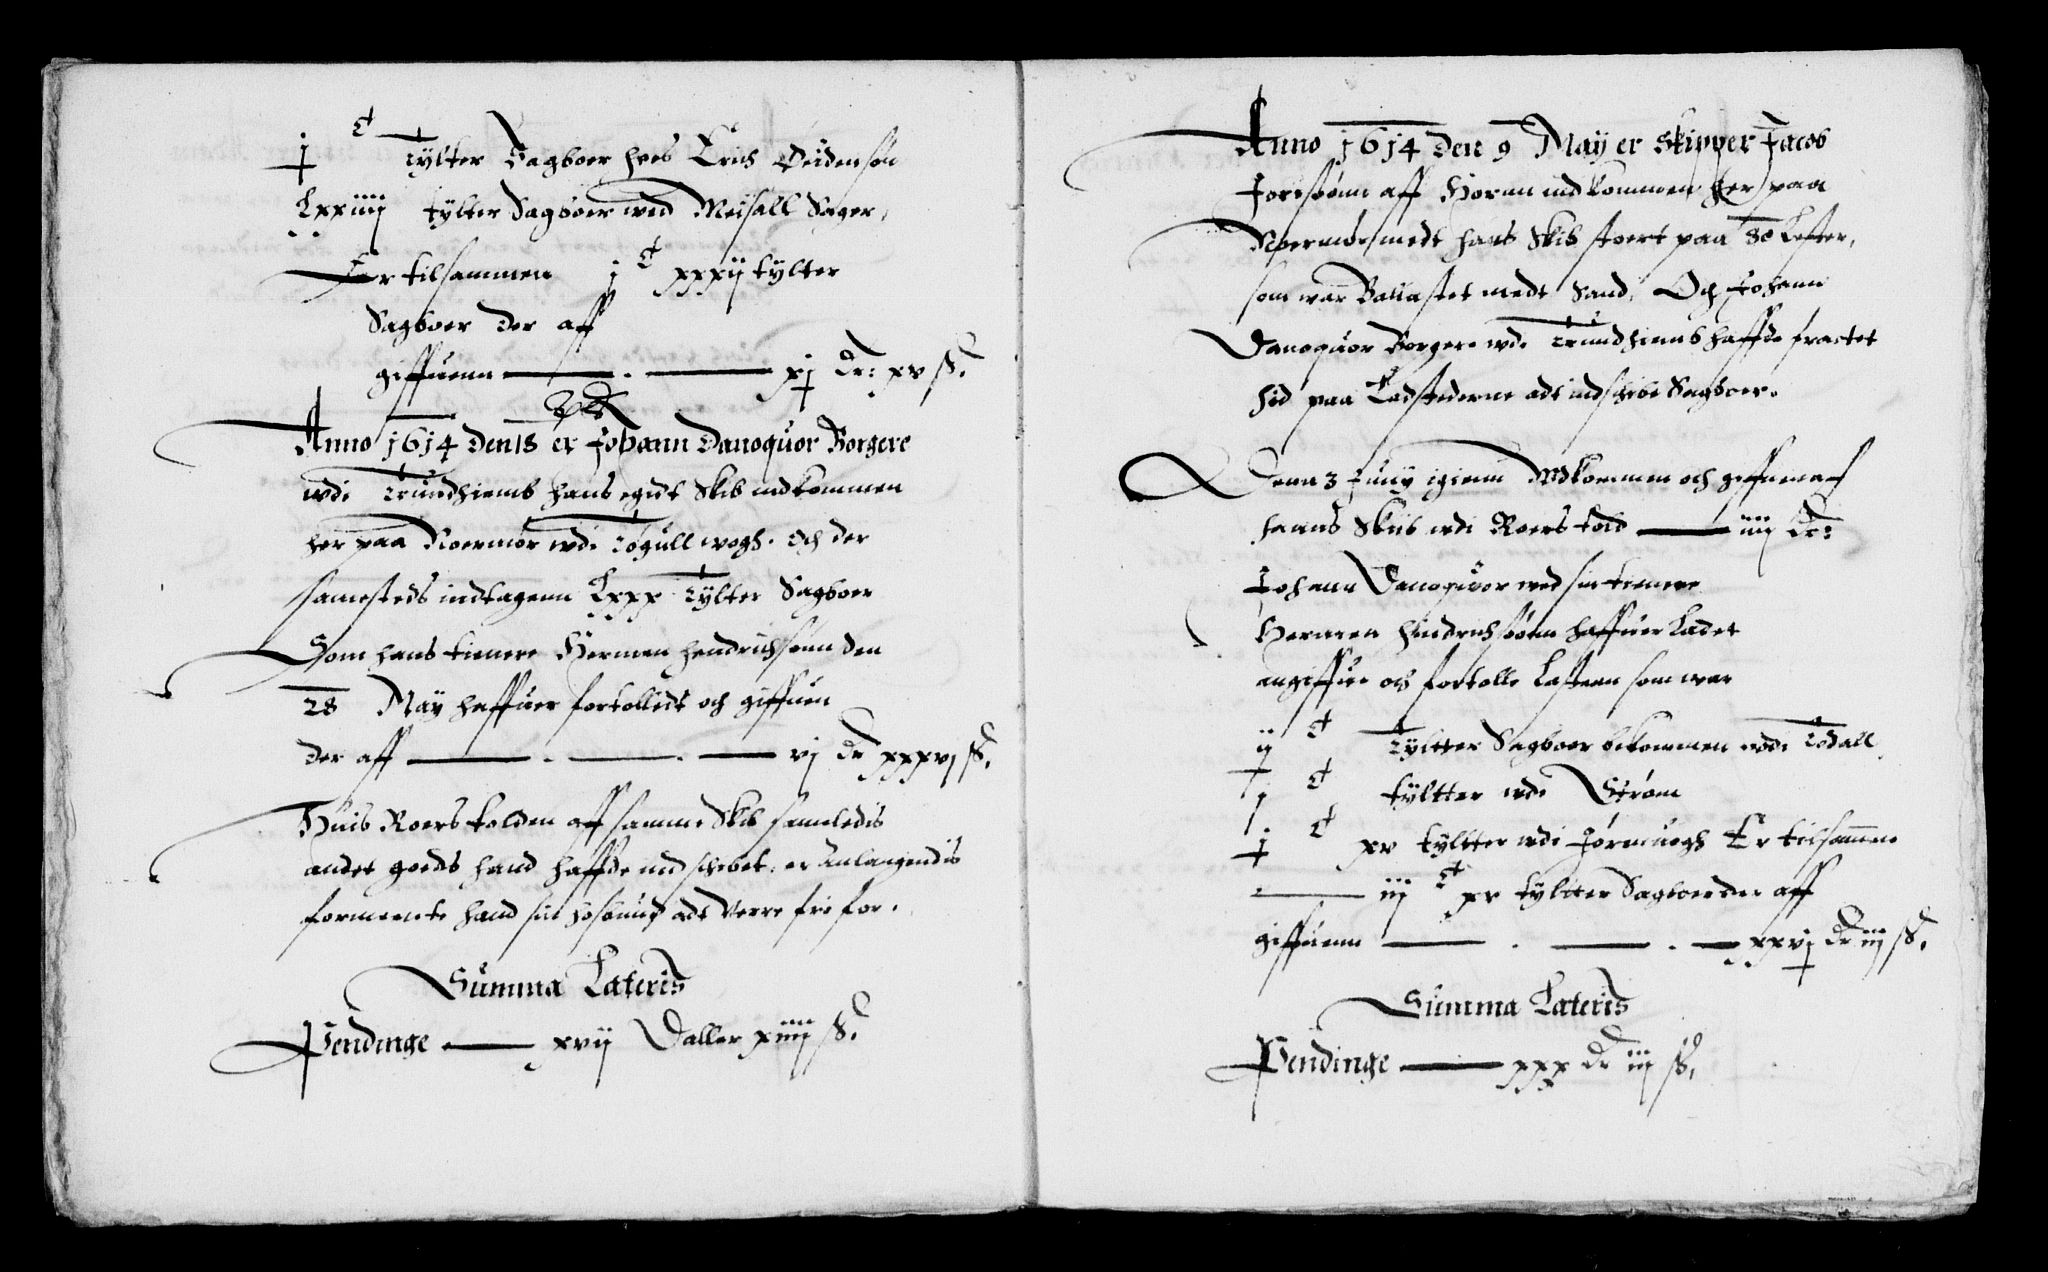 j C Tylter Sagboer hoes Erich Oudensøn
Lxxiiij tylter Sagboer wed Meisall Sager,
Er tilsammen j C xxxij tylter
Sagboer der aff
giffuenn — . — xj Dr: xv ß.
Anno 1614 Den 18 er Johann Danoquor Borgere
wdi Trundhiemb hans egidt Skib indkommen
her paa Noermør wdi Togullwogh. Och der
samesteds indtagenn Lxxx Tylter Sagboer
Som hans tienere Hermen hendrichsønn den
28 May haffuer fortollidt och giffuen
der aff — . — . — vj Dr xxxvj ß.
Huis Roers tolden aff samme Skib sameledis
andet goeds hand haffde indschebet, er Anlangendis
formeente hand sin hosbund adt Verre fri for.
Summa Lateris
Pendinge — xvij Daller xiiij ß.
Anno 1614 Den 9 May er Skipper Jacob
Jorissønn aff Hornn indkommen her paa
Noermør medt hans Skib stoert paa 80 Lester,
som war Ballastet medt Sand, Och Johann
Danoquor Borgere wdi Trundhiemb haffde fractet
hid paa Ladstederne adt indschibe Sagboer.
Denn 3 Juny igienn Vdkommen och giffuen aff
hanns Skiib wdi Roers told — iiij Dr:
Johann Danoquor wed sin tienere
Hermen Hindrichssønn haffuer Ladet
angiffue och fortolle Lasten som war
ij C Tyltter Sagboer bekommen wdi Todall
j C tyltter wdi Strøm
j C xv tyltter wdi Jørmuogh Er tilsammen
— iiij C xv tyltter Sagboer der aff
giffuenn — . — . — xxvj Dr iij ß.
Summa Lateris
Pendinge — xxx Dr iij ß.